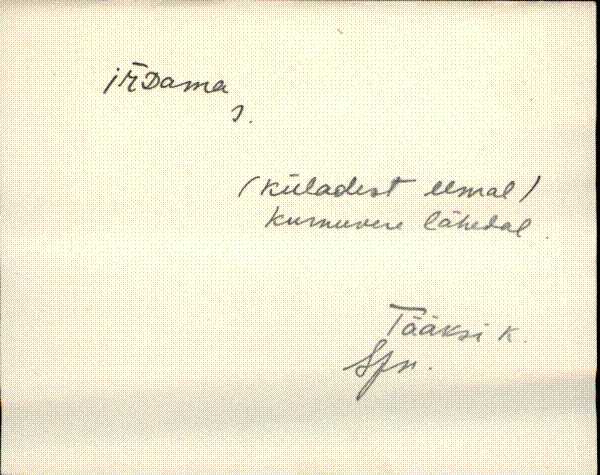 irdama
s.
(küladest eemal)
Kurnuvere lähedal.
Tääksi K.
SJn.